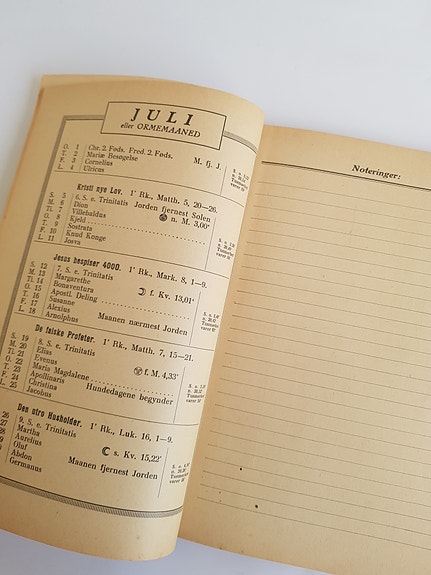 JULI
eller ORMEMAANED
O. 1 Chr. 2. Føds. Fred. 2. Føds.
T. 2 Mariæ Besøgelse M. fj. J.
F. 3 Cornelius
L. 4 Ulricus
Kristi nye Lov. 1' Rk., Matth. 5, 20—26.
S. 5 6. S. e. Trinitatis Jorden fjernest Solen
M. 6 Dion
Ti. 7 Villebaldus n. M. 3,00'
O. 8 Kjeld
T. 9 Sostrata
F. 10 Knud Konge
L. 11 Josva
Jesus bespiser 4000. 1' Rk., Mark. 8, 1—9.
S. 12 7. S. e. Trinitatis
M. 13 Margarethe
Ti. 14 Bonaventura f. Kv. 13,01'
O. 15 Apostl. Deling
T. 16 Susanne
F. 17 Alexius
L. 18 Arnolphus Maanen nærmest Jorden
De falske Profeter. 1' Rk., Matth. 7, 15—21.
S. 19 8. S. e. Trinitatis
M. 20 Elias
Ti. 21 Evenus f. M. 4,33'
O. 22 Maria Magdalene
T. 23 Apollinaris Hundedagene begynder
F. 24 Christina
L. 25 Jacobus
Den utro Husholder. 1' Rk., Luk. 16, 1—9.
26 9. S. e. Trinitatis
Martha
Aurelius s. Kv. 15,22'
Oluf
Abdon Maanen fjernest Jorden
Germanus
Noteringer: